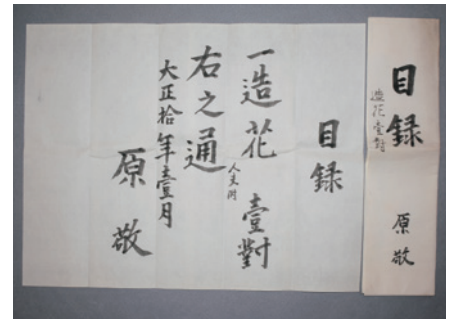 目録
造花壹對
原敬
目録
一造花 壹對
右之通
大正拾年壹月
原敬